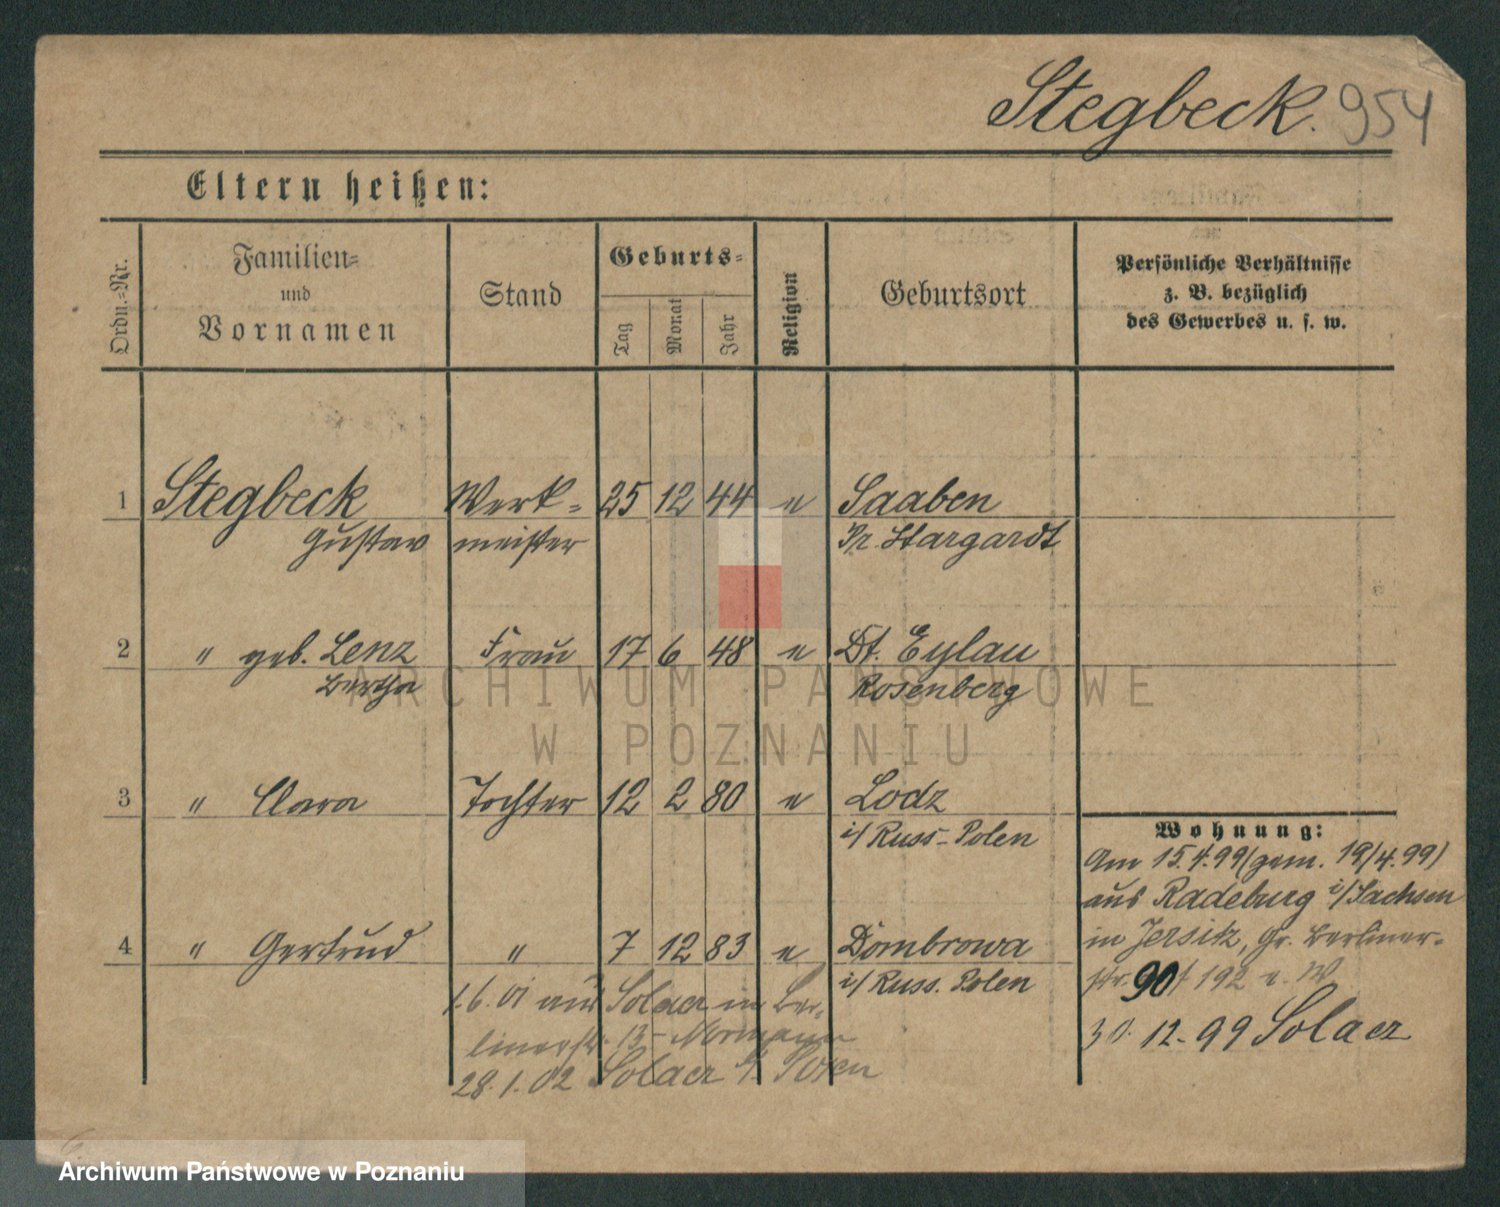 Stegbeck. 954
Eltern heißen:
Ordn.=Nr.
Familien=
und
Vornamen
Stand
Geburts=
Tag
Monat
Jahr
Religion
Geburtsort
Persönliche Verhältnisse
z. B. bezüglich
des Gewerbes u. s. w.
1 Stegbeck Werk= 25 12 44 e Saaben
Gustav meister Pr. Stargardt
2 " geb. Lenz Frau 17 6 48 e Dt. Eylau
Bertha Rosenberg
3 " Clara Tochter 12 2 80 e Lodz
i/ Russ-Polen
4 " Gertrud " 7 12 83 e Dombrowa
i/ Russ. Polen
Wohnung:
Am 15.4.99 (gem. 19/4.99)
aus Radeburg i/Sachsen
in Jersitz, Gr. Berliner-
str. 90 / 192 e. W
30. 12. 99 Solacz
1.6.01 aus Solacz in Ber-
linerstr. 13 - Normann
28.1.02 Solacz b. Posen
ARCHIWUM PAŃSTWOWE
W POZNANIU
Archiwum Państwowe w Poznaniu